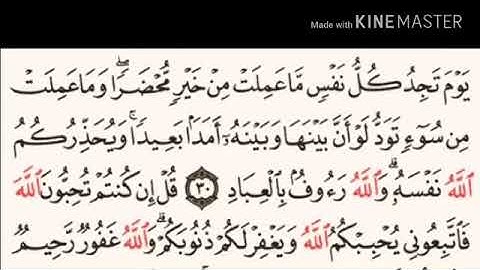 Made with KINEMASTER
يَوْمَ تَجِدُ كُلُّ نَفْسٍ مَّا عَمِلَتْ مِنْ خَيْرٍ مُّحْضَرًا وَمَا عَمِلَتْ
مِن سُوٓءٍ تَوَدُّ لَوْ أَنَّ بَيْنَهَا وَبَيْنَهُۥٓ أَمَدًۢا بَعِيدًا ۗ وَيُحَذِّرُكُمُ
ٱللَّهُ نَفْسَهُۥ ۗ وَٱللَّهُ رَءُوفٌۢ بِٱلْعِبَادِ ٣٠ قُلْ إِن كُنتُمْ تُحِبُّونَ ٱللَّهَ
فَٱتَّبِعُونِى يُحْبِبْكُمُ ٱللَّهُ وَيَغْفِرْ لَكُمْ ذُنُوبَكُمْ ۗ وَٱللَّهُ غَفُورٌ رَّحِيمٌ